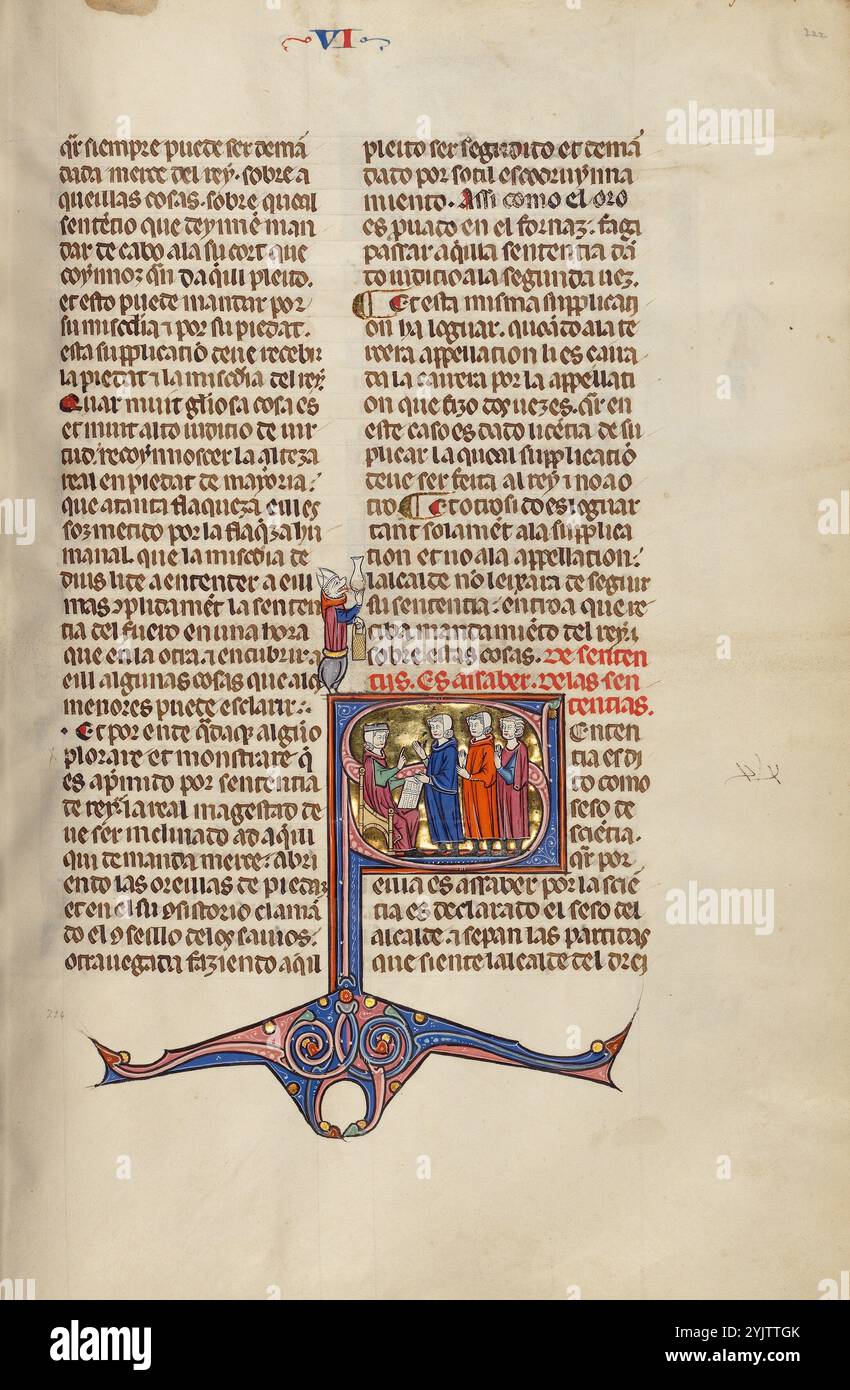 VI
222
q̄r siempre puede ser demā
dada merce del rey. sobre a
queillas cosas. sobre queal
sentēcio que deynnē man
dar de cabo ala su cort que
coynnoz q̄n daq̄ui pleito.
et esto puede mandar por
su mis̄cdia ⁊ por su piedat.
esta supplicatiō deue recebir
la piedat ⁊ la mis̄cdia del rey
Quar muit gl̄iosa cosa es
et muit alto iudicio de uir
tud. recoynnoscer la alteza
real en piedat de mayoria.
que atanta flaqueza eill es
sozmetido por la flaq̄za hu
manal. que la mis̄cdia de
dius li de a entender a eill
mas ↄplidamēt la senten
tia del fuero en una hora
que en la otra. ⁊ encubrir a
eill algunas cosas que a los
menores puede esclarir.
Et por ende q̄daq̄ algūo
plorare et monstrare q̄
es ap̄mido por sententia
de rey. la real magestad de
ue ser inclinado ad aq̄ill
qui demanda merce. abri
endo las oreillas de piedat
et en el su ↄsistorio clamā
do el ↄseillo delos sauios.
otra uegada faziendo aq̄il
pleito ser seguidito et demā
dado por sotil escodruynna
miento. Assi como el oro
es p̄uado en el fornaz. faga
passar aq̄uila sententia dā
do iudicio ala segunda uez.
Et esta misma supplicati
on ha loguar. quādo ala te
rcera appellation li es çarra
da la carrera por la appellati
on que fizo dos uezes. q̄r en
este caso es dado licētia de su
plicar la queal supplicatiō
deue ser feita al rey ⁊ no a o
tro Et otrosi do es loguar
tant solamēt ala supplica
tion et no ala appellation.
lalcalde nō leixara de seguir
su sententia. entroa que re
ciba mandamiēto del rey. ⁊
sobre estas cosas. De senten
tiis. Es assaber. Delas sen
tentias.
Senten
tia es di
to como
seso de
sciētia.
q̄r por
eilla es assaber por la sciē
tia es declarado el seso del
alcalde. ⁊ sepan las partidas
que siente lalcalde del drei
224
alamy
Image ID: 2YJTTGK
www.alamy.com